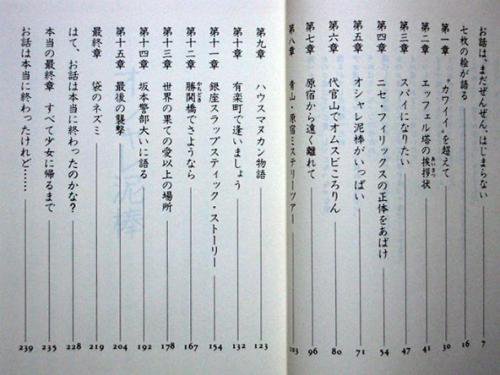 お話は、まだぜんぜん、はじまらない 7
七枚の絵が語る 16
第一章 “カワイイ”を超えて 30
第二章 エッフェル塔の挨拶状 41
第三章 スパイになりたい 47
第四章 ニセ・フィリックスの正体をあばけ 54
第五章 オシャレ泥棒がいっぱい 71
第六章 代官山でオムスビころりん 80
第七章 原宿から遠く離れて 96
第八章 青山・原宿ミステリーツアー 103
第九章 ハウスマヌカン物語 123
第十章 有楽町で逢いましょう 132
第十一章 銀座スラップスティック・ストーリー 154
第十二章 勝鬨橋でさようなら 167
第十三章 世界の果ての愛以上の場所 178
第十四章 坂本警部大いに語る 192
第十五章 最後の襲撃 204
最終章 袋のネズミ 219
はて、お話は本当に終わったのかな? 228
本当の最終章 すべて少女に帰るまで 235
お話は本当に終わったけれど…… 239